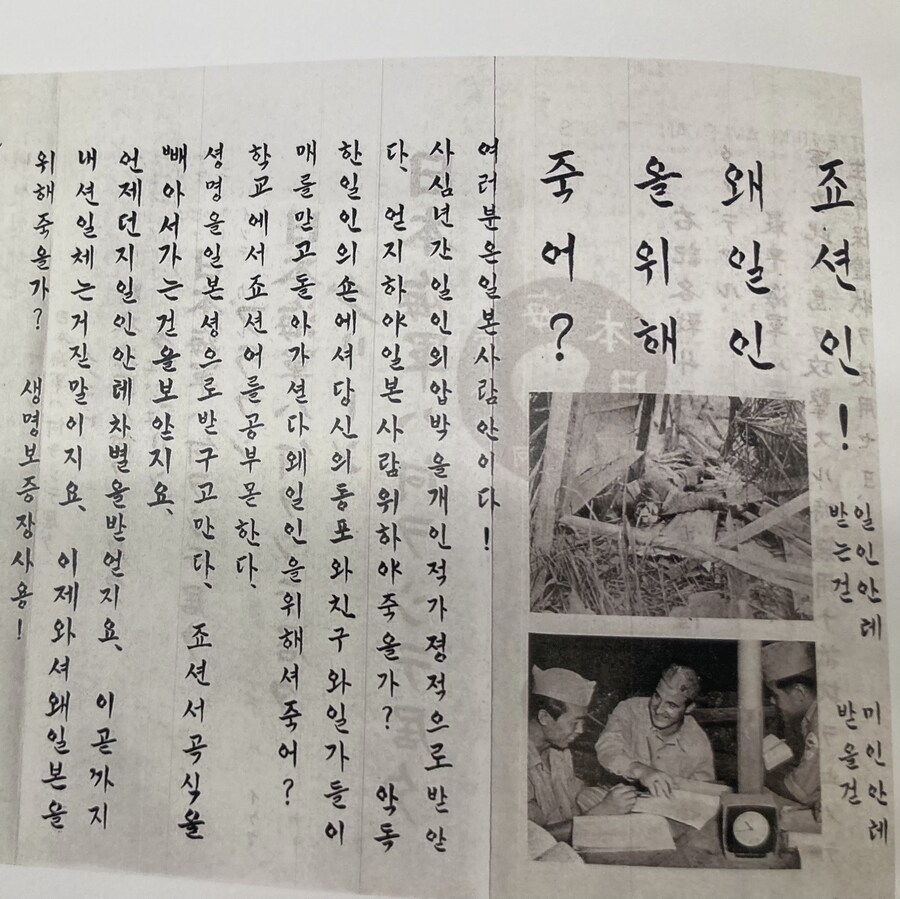 죠션인!
왜일인
을위해
죽어?
일인안례
받는건
미인안례
받을건
여러분은일본사람안이다!
사심년간일인의압박을개인적가졍적으로받앋
다、얻지하야일본사람위하야죽을가? 악독
한일인의손에셔당신의동포와친구와일가들이
매를맏고돌아가션다왜일인을위해셔죽어?
학교에서죠션어를공부몯한다、
셩명을일본셩으로받구고만다、 죠션서곡식을
빼아서가는걷을보앋지요、
언제던지일인안례차별을받얻지요、 이곧까지
내션일체는거진말이지요、 이제와셔왜일본을
위해죽을가? 생명보증장사용!